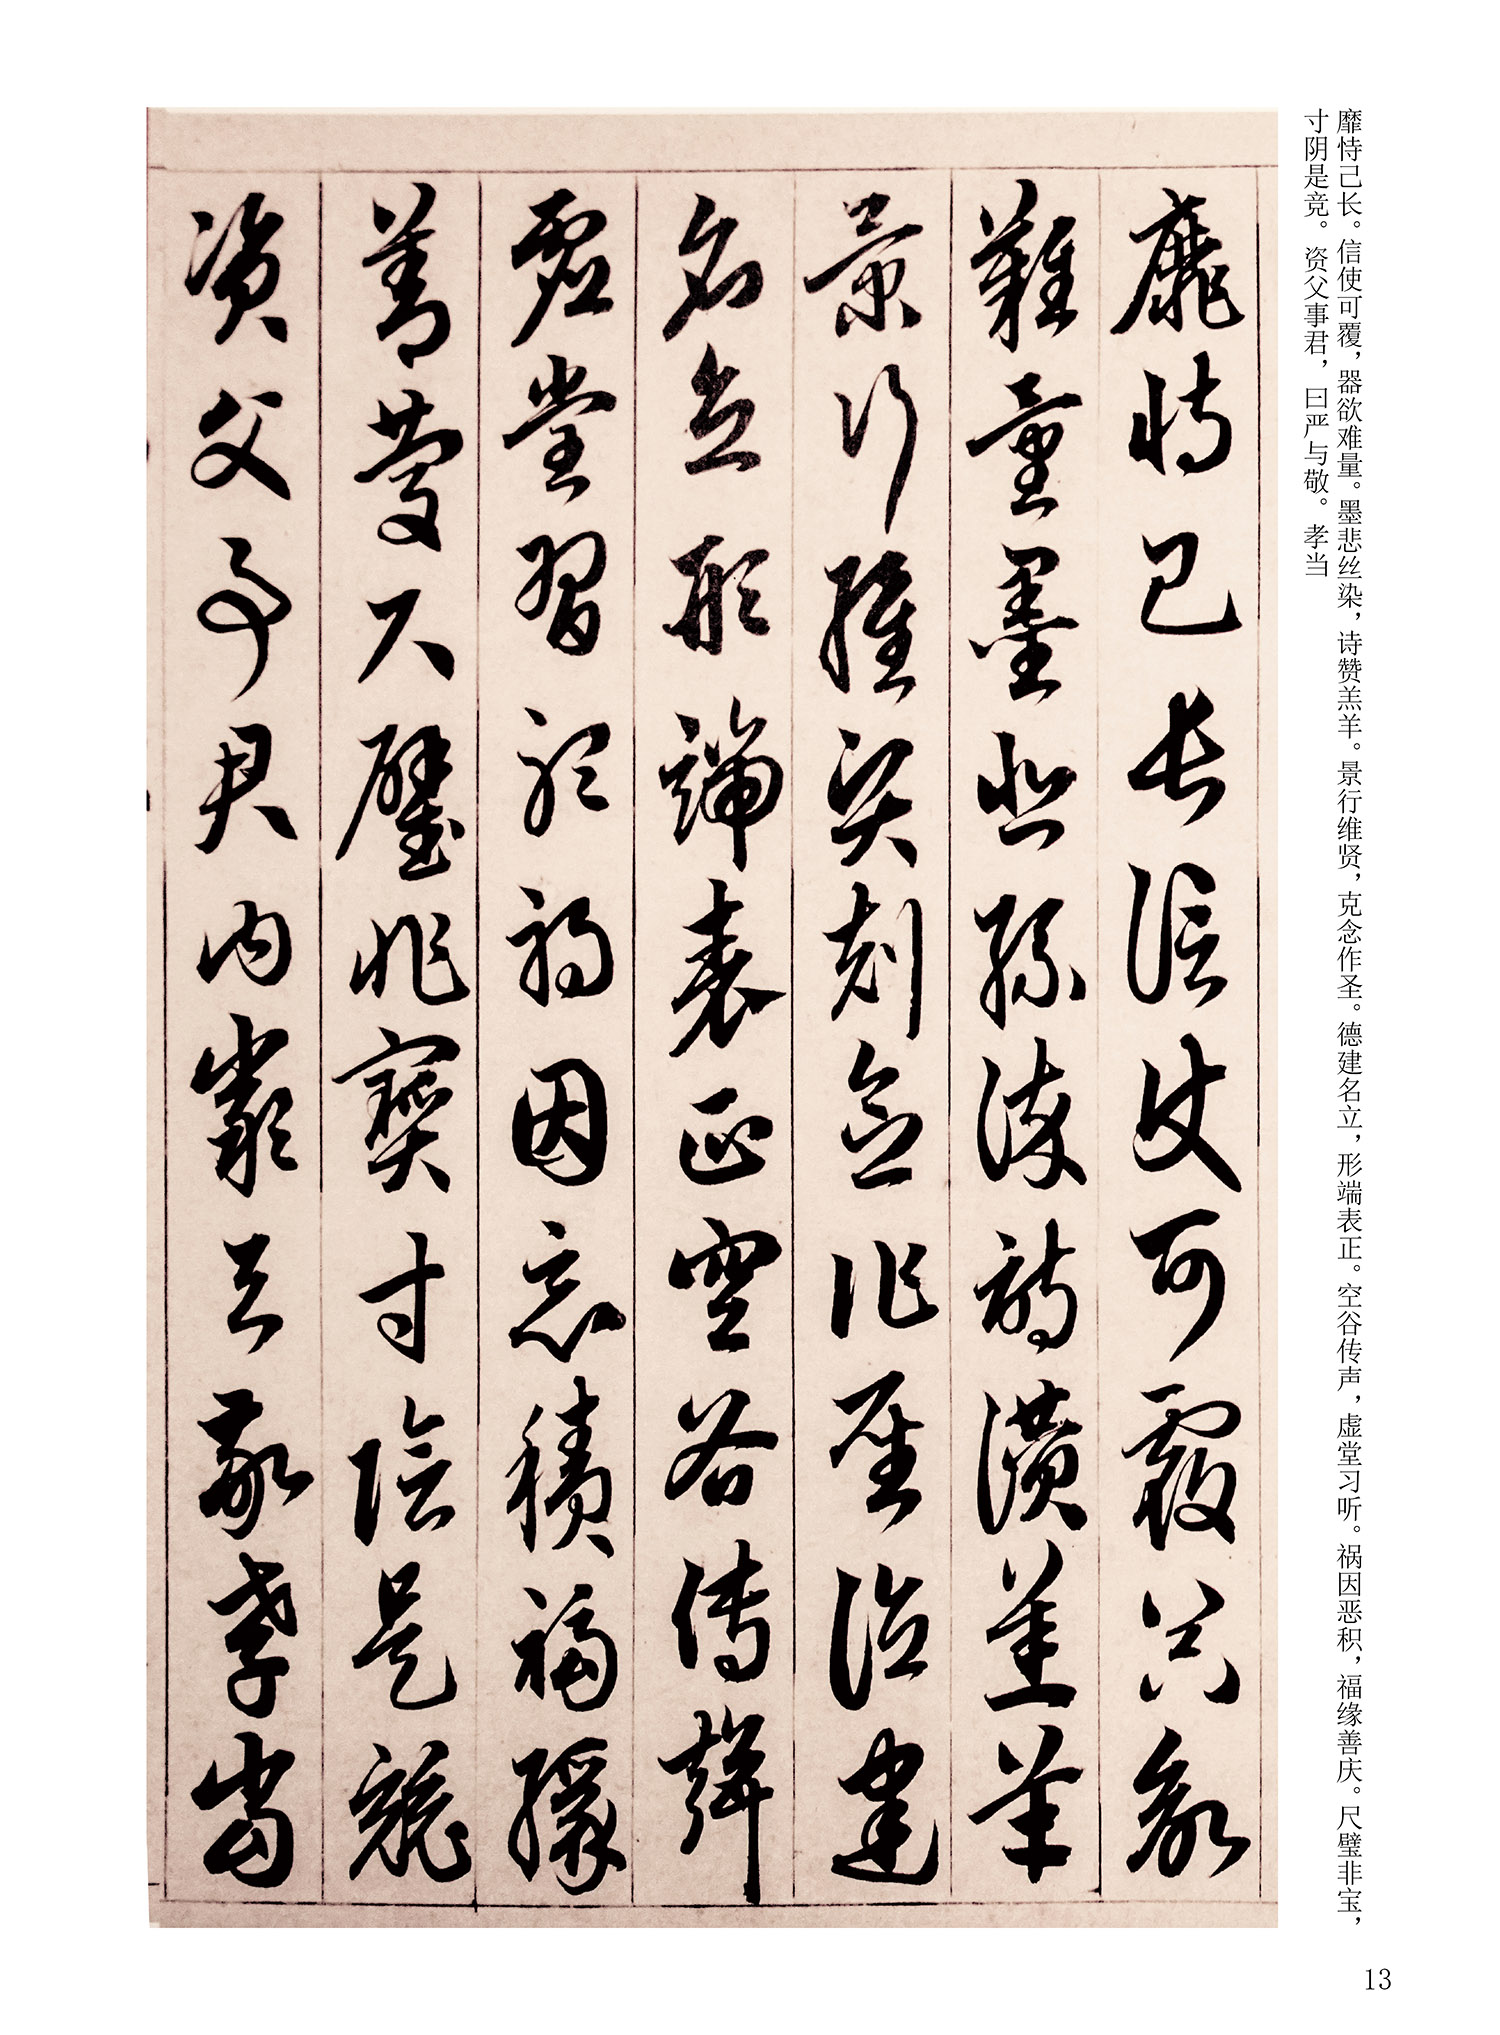 靡恃己长。信使可覆，器欲难量。墨悲丝染，诗赞羔羊。景行维贤，克念作圣。德建名立，形端表正。空谷传声，虚堂习听。祸因恶积，福缘善庆。尺璧非宝，
寸阴是竞。资父事君，曰严与敬。孝当
靡恃己長信使可覆器欲
難量墨悲絲染詩讚羔羊
景行維賢剋念作聖德建
名立形端表正空谷傳聲
虛堂習聽禍因惡積福緣
善慶尺璧非寶寸陰是競
資父事君曰嚴与敬孝當
13